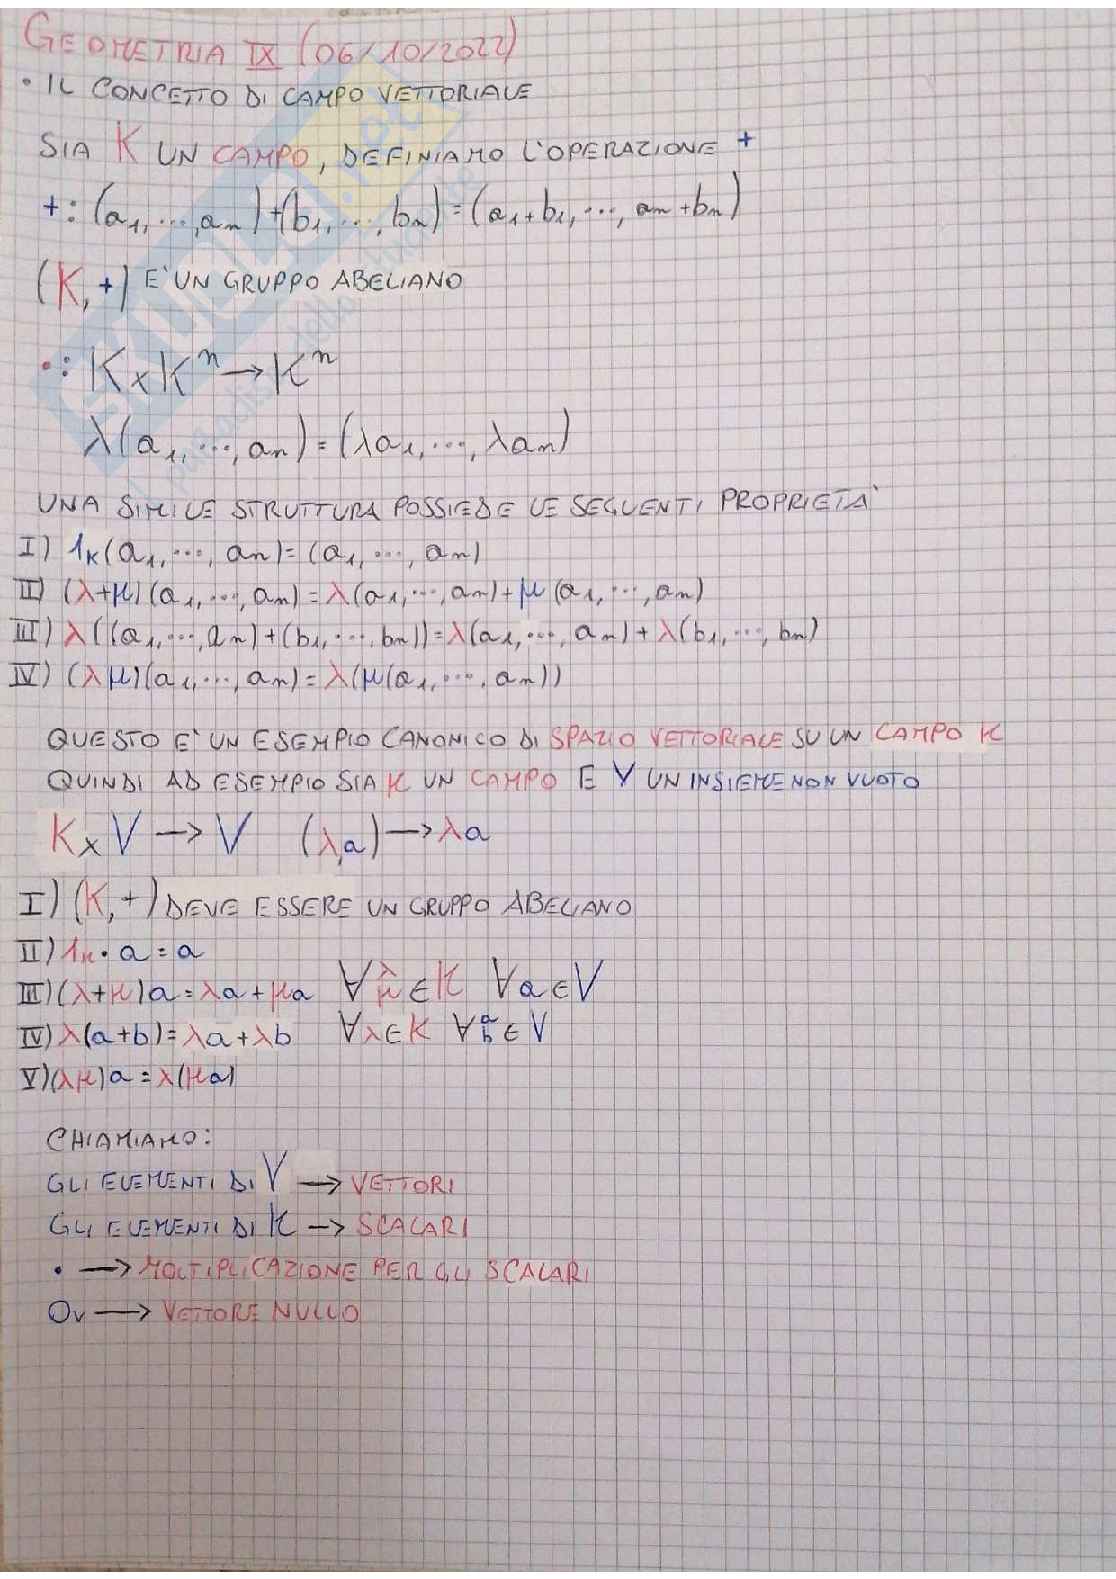 GEOMETRIA IX (06/10/2022)
• IL CONCETTO DI CAMPO VETTORIALE
SIA K UN CAMPO, DEFINIAMO L'OPERAZIONE +
+: (a₁, ..., aₙ)+(b₁, ..., bₙ)=(a₁+b₁, ..., aₙ+bₙ)
(K, +) E' UN GRUPPO ABELIANO
•: K×Kⁿ→Kⁿ
λ(a₁, ..., aₙ)=(λa₁, ..., λaₙ)
UNA SIMILE STRUTTURA POSSIEDE LE SEGUENTI PROPRIETA'
I) 1ₖ(a₁, ..., aₙ)=(a₁, ..., aₙ)
II) (λ+μ)(a₁, ..., aₙ)=λ(a₁, ..., aₙ)+μ(a₁, ..., aₙ)
III) λ((a₁, ..., aₙ)+(b₁, ..., bₙ))=λ(a₁, ..., aₙ)+λ(b₁, ..., bₙ)
IV) (λμ)(a₁, ..., aₙ)=λ(μ(a₁, ..., aₙ))
QUESTO E' UN ESEMPIO CANONICO DI SPAZIO VETTORIALE SU UN CAMPO K
QUINDI AD ESEMPIO SIA K UN CAMPO E V UN INSIEME NON VUOTO
K×V→V (λ,a)→λa
I) (K, +) DEVE ESSERE UN GRUPPO ABELIANO
II) 1ₖ·a=a
III) (λ+μ)a=λa+μa ∀ λ μ ∈K ∀a∈V
IV) λ(a+b)=λa+λb ∀λ∈K ∀ a b ∈V
V) (λμ)a=λ(μa)
CHIAMIAMO:
GLI ELEMENTI DI V → VETTORI
GLI ELEMENTI DI K → SCALARI
• → MOLTIPLICAZIONE PER GLI SCALARI
0ᵥ → VETTORE NULLO